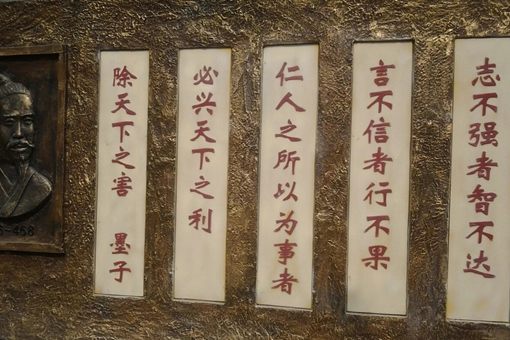 志不强者智不达
言不信者行不果
仁人之所以为事者
必兴天下之利
除天下之害 墨子
-468